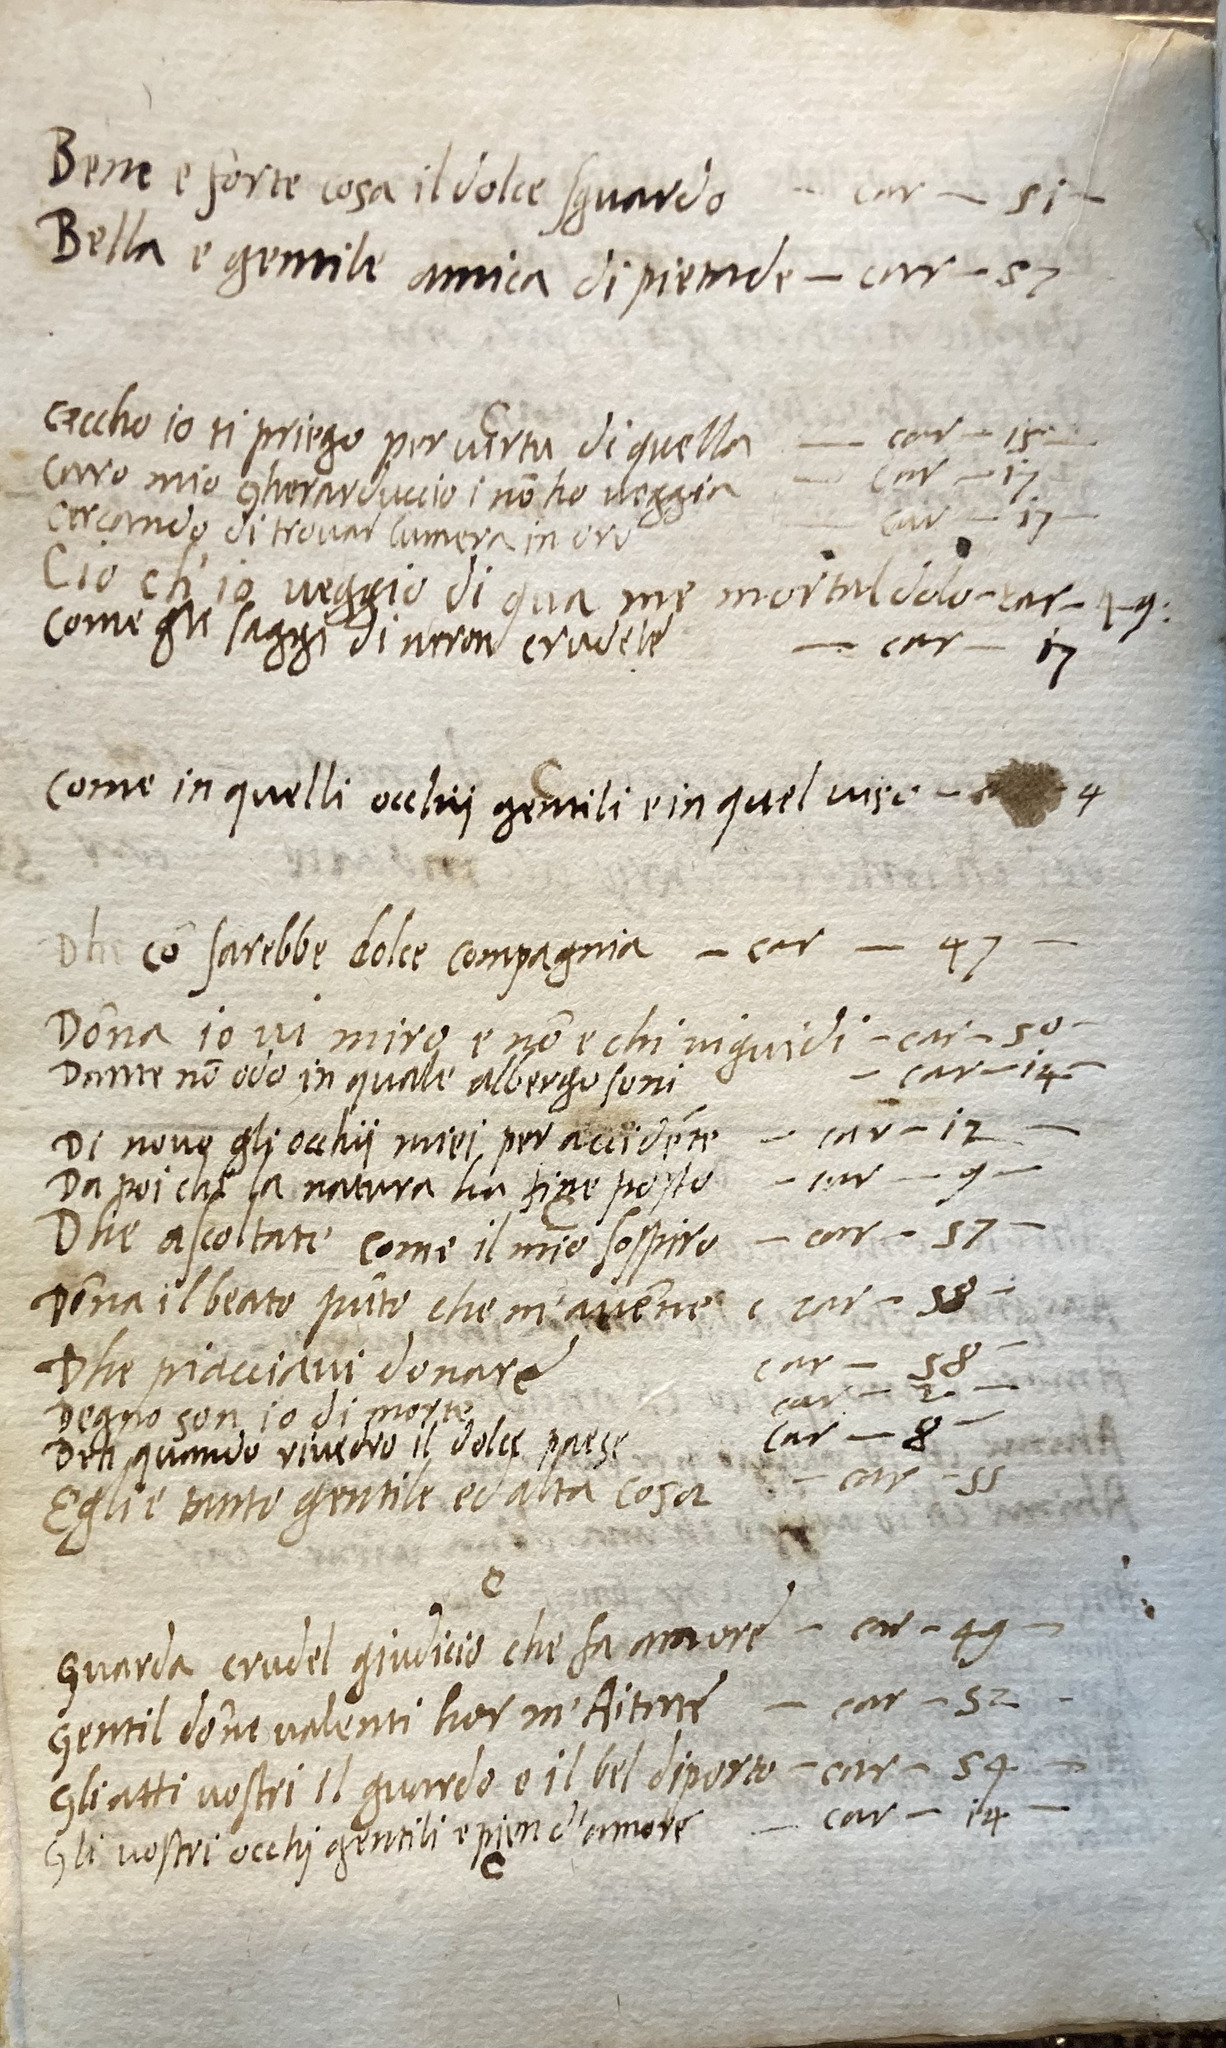 Bene e forte cosa il dolce sguardo - car - 51 -
Bella e gentile amica di pietade - car - 57
Ceccho io ti priego per virtu di quella - car - 15 -
Caro mio Gherarduccio i nõ ho veggia - car - 17 -
Cercando di trovar lumera in oro - car - 17 -
Cio ch'io veggio di qua me mortal dolo - car - 49.
Come gli saggi di neron crudele - car - 17
Come in quelli occhij gentili e in quel viso - 4
Dhe cõ sarebbe dolce compagnia - car - 47 -
Dõna io vi miro e nõ e chi viguidi - car - 50 -
Dante nõ odo in quale albergo soni - car - 14 -
Di nove gli occhij miei per accidẽte - car - 12 -
Da poi che la natura ha fine posto - car - 9 -
Dhe ascoltate come il mio sospiro - car - 57 -
Dõna il beato pũto che m'avẽne car - 58 -
Dhe piacciavi donare car - 58 -
Degno son io di morte car -
Deh quando rivedro il dolce paese car - 8 -
Egli e tanto gentile ed alta cosa - car - 55
Guarda crudel giudicio che fa amore - car - 49 -
Gentil dõne valenti hor m'Aitate - car - 52 -
Gli atti vostri il guardo e il bel diporto - car - 54 -
Gli vostri occhj gentili e pien d'amore - car - 14 -